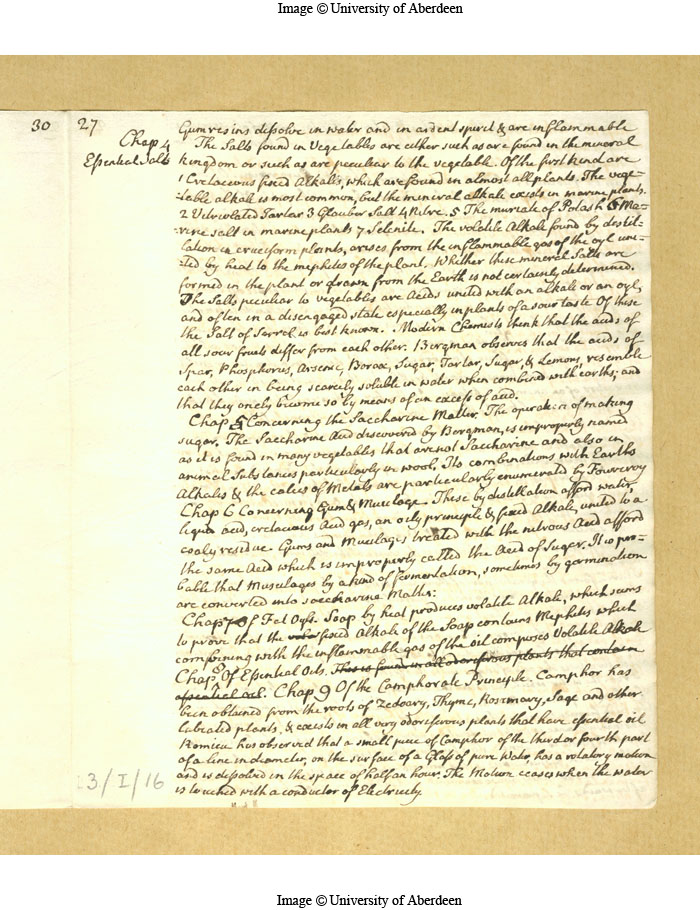 Image © University of Aberdeen
30
27
Chap 4
Essential Salts
Gumresins dissolve in water and in ardent spirit & are inflammable
The Salts found in Vegetables are either such as are found in the mineral
kingdom or such as are peculiar to the vegetable. Of the first kind are
1 Cretaceous fixed Alkali, which are found in almost all plants. The vege-
-table alkali is most common, but the mineral alkale exists in marine plants.
2 Vitriolated Tartar 3 Glauber Salt 4 Nitre. 5 The muriate of Potash 6 Ma-
-rine salt in marine plants 7 Selenite. The volatile Alkali found by destil-
lation in cruciform plants, arises from the inflammable gas of the oyl uni-
-ted by heat to the mephites of the plant. Whither these mineral Salts are
formed in the plant or drawn from the Earth is not certainly determined.
The Salts peculiar to vegetables are Acids united with an alkali or an oyl,
and often in a disengaged state especially in plants of a sour taste Of these
the Salt of Sorrel is best known. Modern Chemists think that the acids of
all sour fruits differ from each other. Bergman observes that the acids of
Spar, Phosphorus, Arsenic, Borax, Sugar, Tartar, Sugar, & Lemons, resemble
each other in being scarcely soluble in water when combined with earths; and
that they onely become so by means of an excess of acid.
Chap 5 Concerning the Saccharine Matter. The operation of making
sugar. The Saccharine Acid discovered by Bergman, is improperly named
as it is found in many vegetables that are not Saccharine and also in
animal Substances particularly in wool, Its combinations with Earths
Alkalis & the calces of Metals are particularly enumerated by Fourcroy
Chap 6 Concerning Gum & Mucilage. These by distillation afford water,
liquid acid, cretaceous Acid gas, an oily principle & fixed Alkali, united to a
coaly residue. Gums and Mucilages treated with the nitrous Acid afford
the same Acid which is improperly called the Acid of Sugar. It is pro-
bable that Muscilages by a kind of fermentation, sometimes by germination
are converted into saccharine Matter:
Chap 7 Of Fat Oyls. Soap by heat produces volatile Alkale, which seems
to prove that the fixed Alkale of the Soap contains Mephites which
combining with the inflammable gas of the oil composes Volatile Alkale
Chap 8 Of Essential Oils. This is found in all odoriferous plants that contain
essential oil. Chap 9 Of the Camphorate Principle. Camphor has
been obtained from the roots of Zedoary, Thyme, Rosmary, Sage and other
Labiated plants, & exists in all very odoriferous plants that have essential oil
Romieu has observed that a small piece of Camphor of the third or fourth part
of a line in diameter, on the surface of a Glass of pure Water, has a rotatory motion
and is dissolved in the space of half an hour. The Motion ceases when the water
is touched with a conductor of Electricity
3/I/16
Image © University of Aberdeen